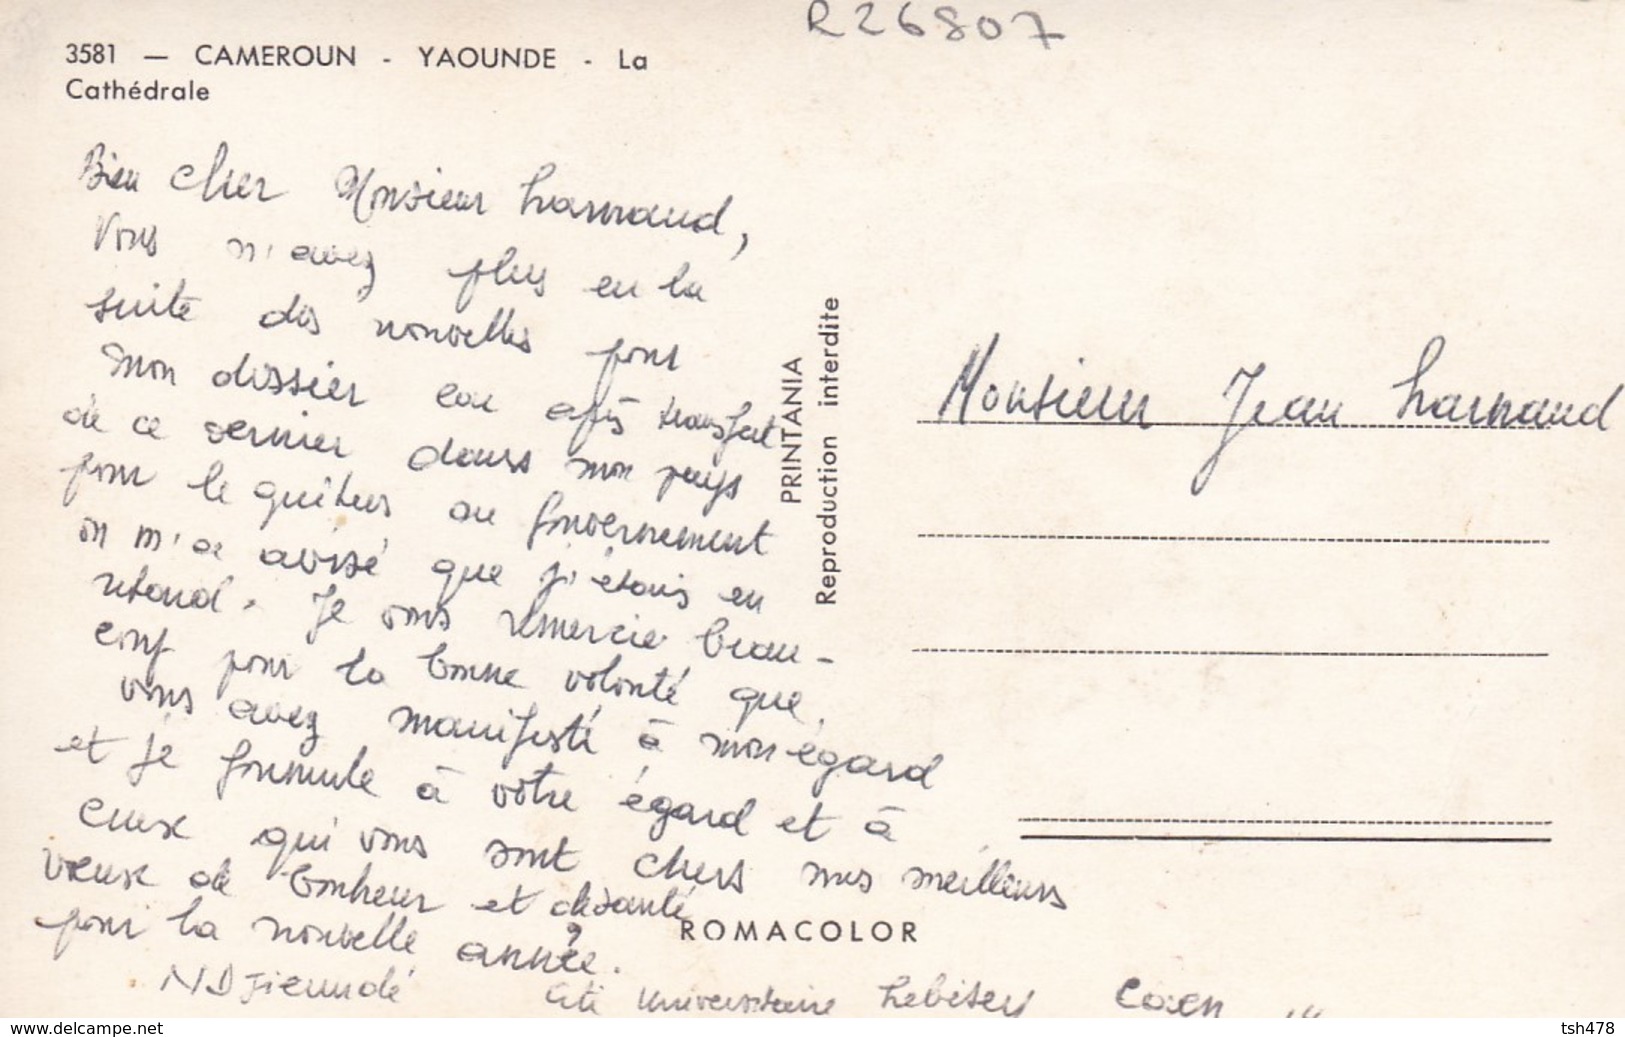 R26807
3581 — CAMEROUN - YAOUNDE - La
Cathédrale
Bien cher Monsieur Larnaud,
Vous n'avez plus eu la
suite des nouvelles pour
mon dossier car après transfert
de ce dernier dans mon pays
pour le quitus au gouvernement
on m'a avisé que j'étais en
retard. Je vous remercie beau-
coup pour la bonne volonté que
vous avez manifesté à mon égard
et je formule à votre égard et à
ceux qui vous sont chers mes meilleurs
vœux de bonheur et de santé
pour la nouvelle année.
NDJiemdé
Cité Universitaire Lebisey Caen
PRINTANIA
Reproduction interdite
ROMACOLOR
Monsieur Jean Larnaud
www.delcampe.net
tsh478